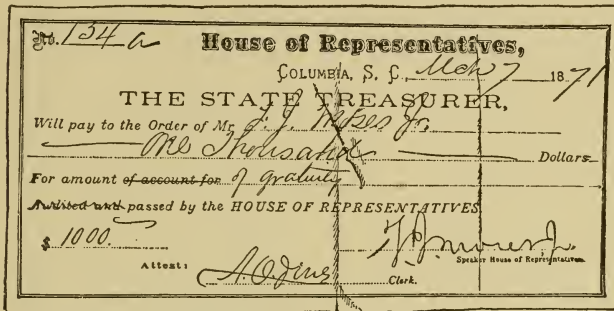 No. 134 a House of Representatives,
COLUMBIA, S. C., Mch 7 1871
THE STATE TREASURER,
Will pay to the Order of Mr. F. J. Moses Jr.
One Thousand Dollars
For amount of account for of gratuity
Audited and passed by the HOUSE OF REPRESENTATIVES.
$ 1000.
F. J. Moses Jr.
Speaker House of Representatives.
Attest: A. O. Jones
Clerk.